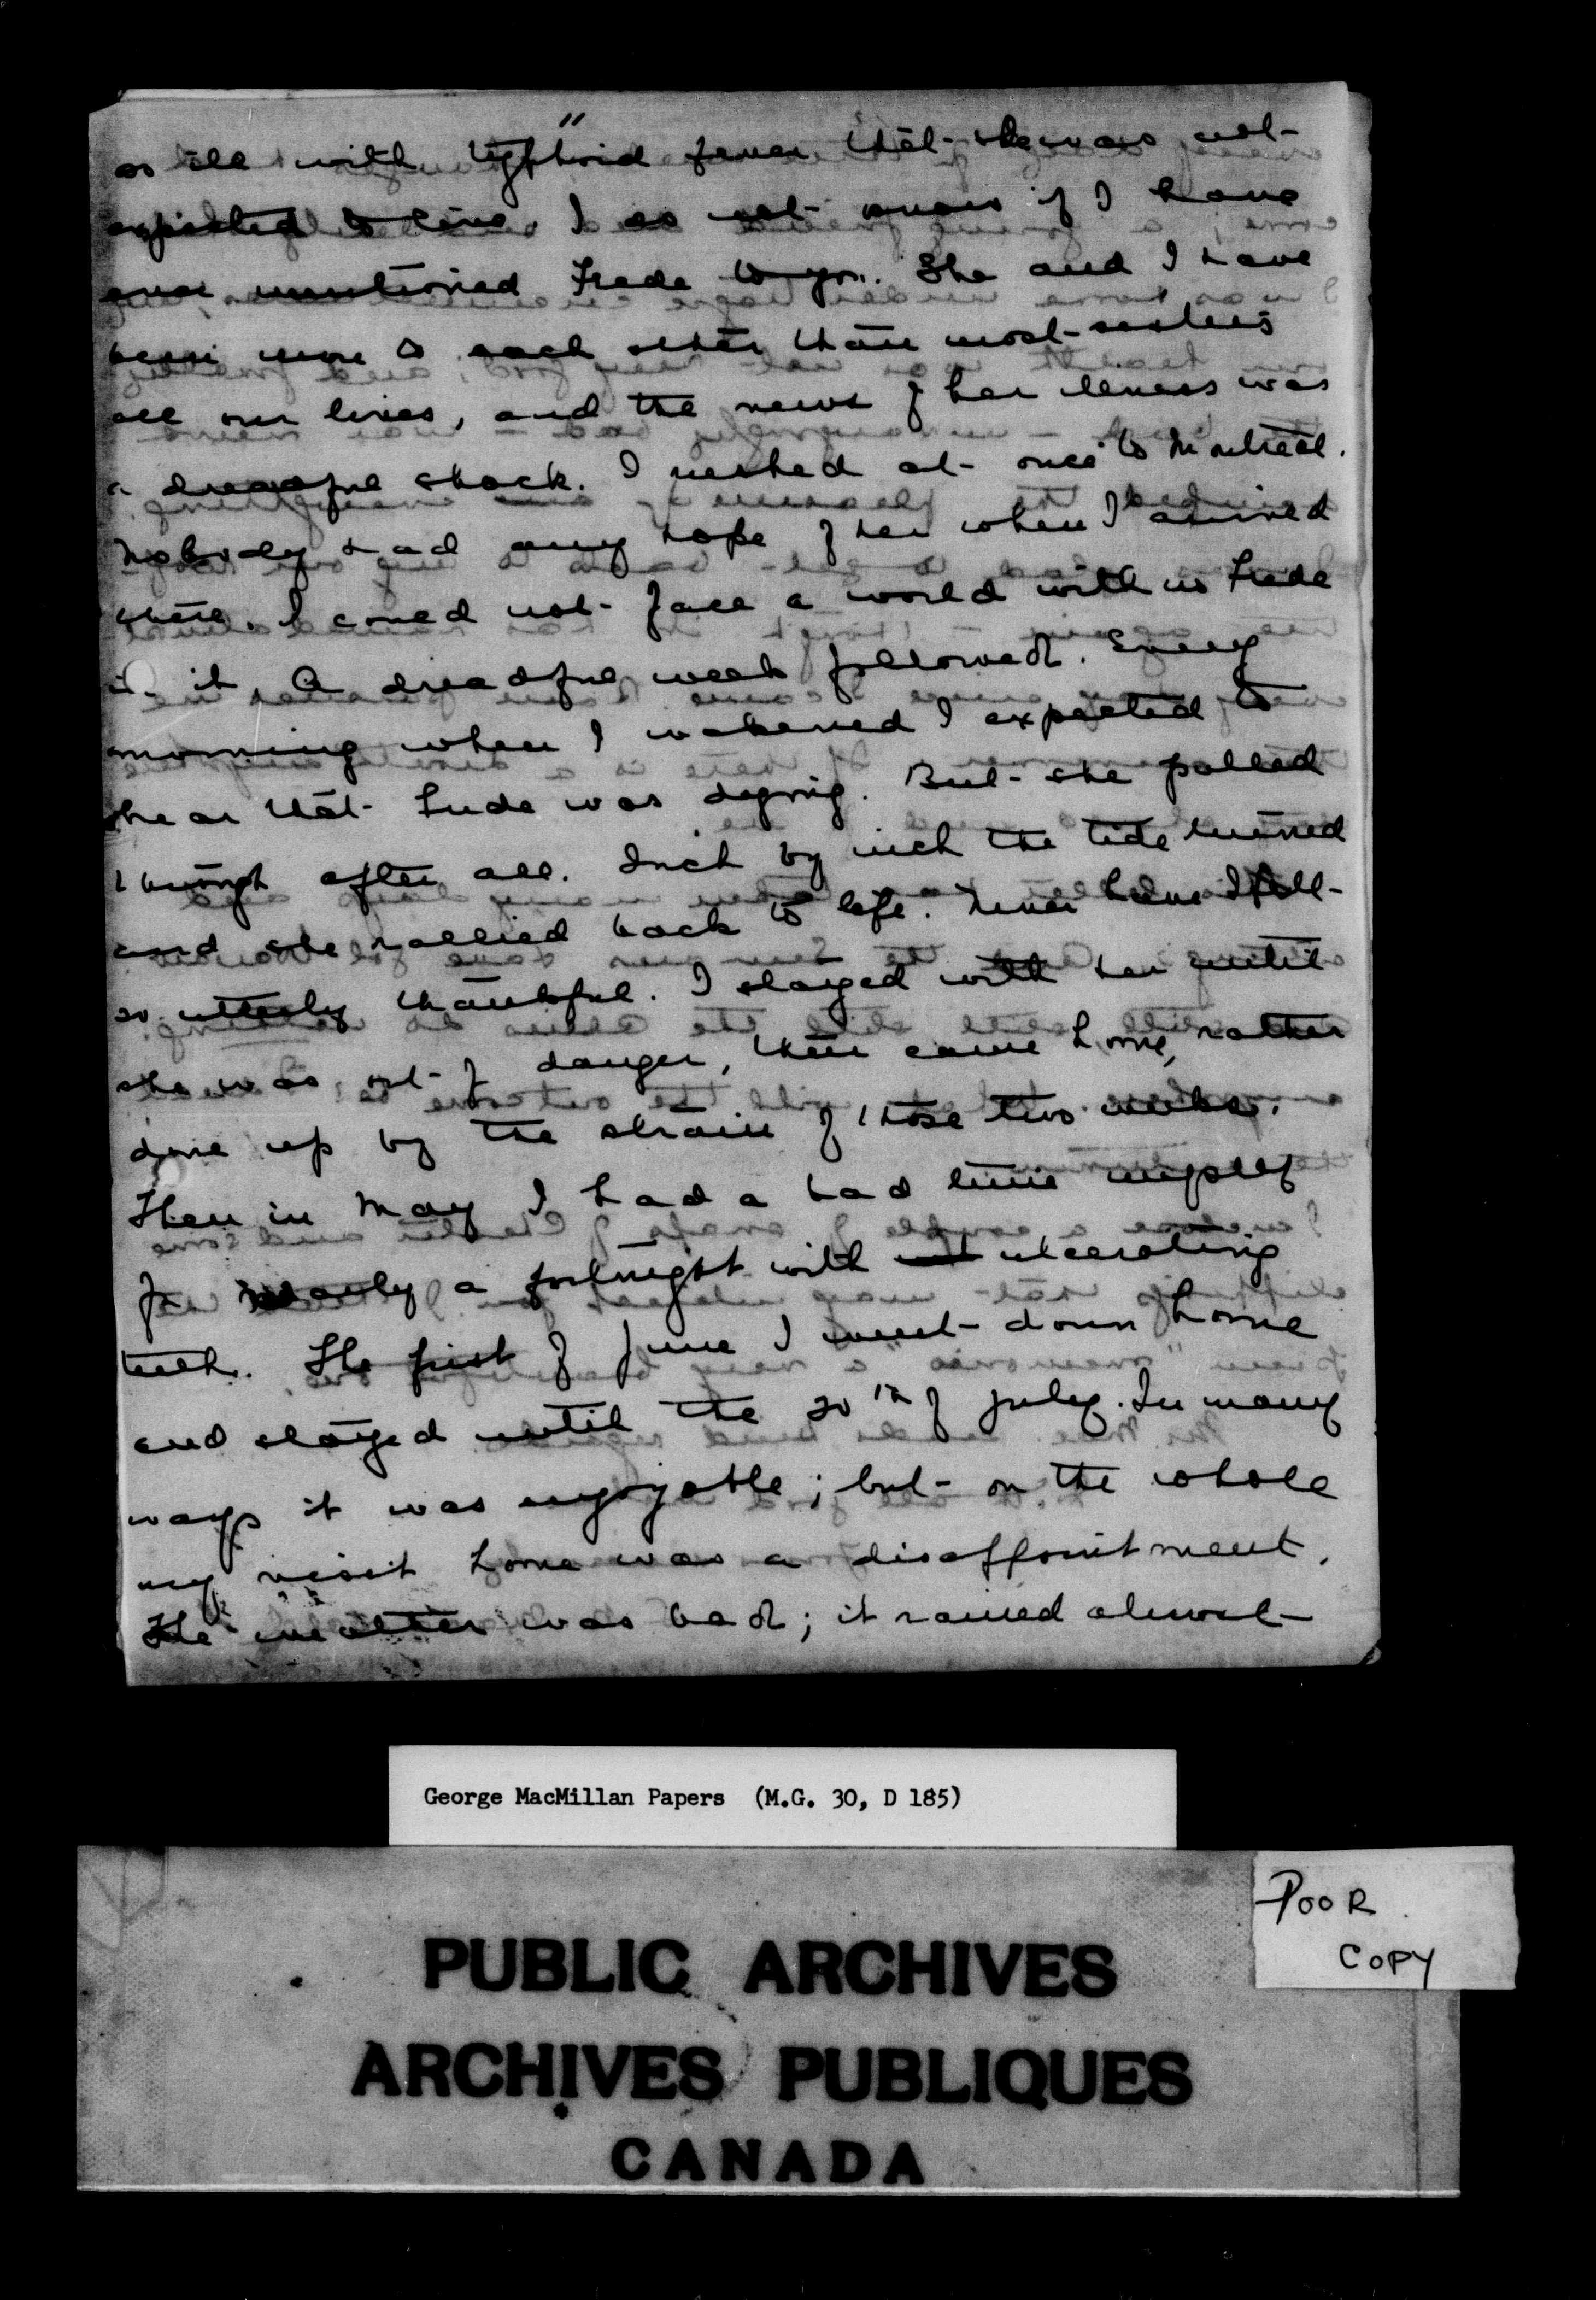 11
so ill with typhoid fever that she was not
expected to live. I do not know if I have
ever mentioned Frede to you. She and I have
been more to each other than most sisters
all our lives, and the news of her illness was
a dreadful shock. I rushed at once to Montreal.
Nobody had any hope of her when I arrived
there. I could not face a world with no Frede
in it. A dreadful week followed. Every
morning when I wakened I expected to
hear that Frede was dying. But she pulled
through after all. Inch by inch the tide turned
and she rallied back to life. Never have I felt
so utterly thankful. I stayed with her until
she was out of danger, then came home, rather
done up by the strain of those two weeks.
Then in May I had a bad time myself
for nearly a fortnight with ulcerating
teeth. The first of June I went down home
and stayed until the 20th of July. In many
ways it was enjoyable; but on the whole
my visit home was a disappointment.
The weather was bad; it rained almost
George MacMillan Papers (M.G. 30, D 185)
POOR
COPY
PUBLIC ARCHIVES
ARCHIVES PUBLIQUES
CANADA